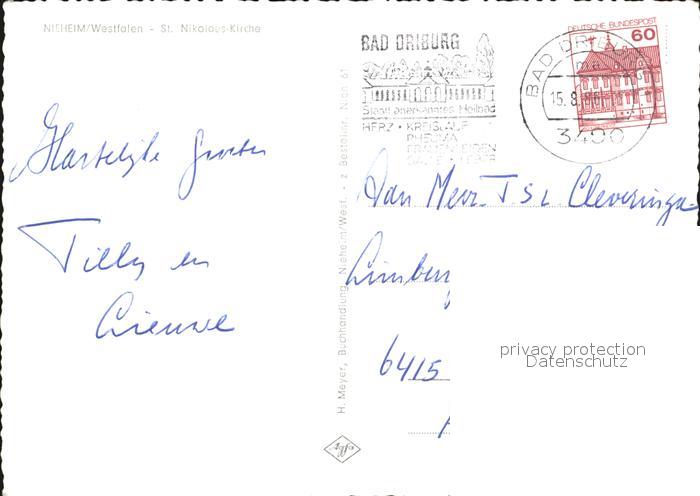 NIEHEIM/Westfalen - St. Nikolaus-Kirche
Hartelijke Groeten
Tilly en
Lieuwe
H. Meyer, Buchhandlung, Nieheim/Westf. - z Bestellnr. Nieh 61
Agfa
BAD DRIBURG
Staatl anerkanntes Heilbad
HERZ • KREISLAUF
RHEUMA
FRAUENLEIDEN
BAD DRIBURG
15.8.86
3490
DEUTSCHE BUNDESPOST
60
Aan Mevr. T S L Cleveringa-
Limburg
6415
privacy protection
Datenschutz